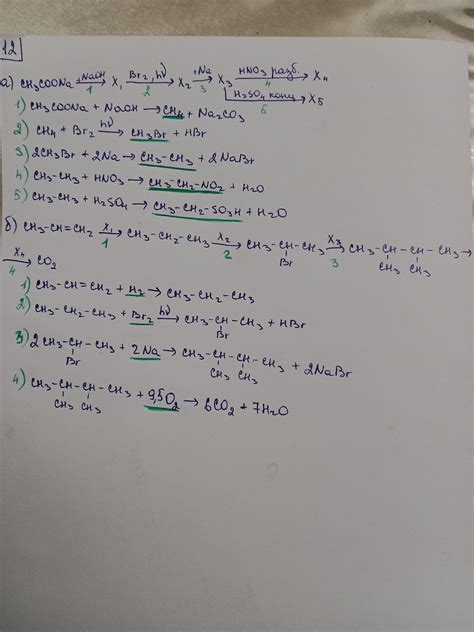 12
а) CH₃COONa +NaOH→ 1 X₁ Br₂, hν→ 2 X₂ +Na→ 3 X₃ HNO₃ разб.→ 4 X₄
H₂SO₄ конц→ 5 X₅
1) CH₃COONa + NaOH → CH₄ + Na₂CO₃
2) CH₄ + Br₂ hν→ CH₃Br + HBr
3) 2CH₃Br + 2Na → CH₃-CH₃ + 2NaBr
4) CH₃-CH₃ + HNO₃ → CH₃-CH₂-NO₂ + H₂O
5) CH₃-CH₃ + H₂SO₄ → CH₃-CH₂-SO₃H + H₂O
б) CH₃-CH=CH₂ X₁→ 1 CH₃-CH₂-CH₃ X₂→ 2 CH₃-CH-CH₃ X₃→ 3 CH₃-CH-CH-CH₃ →
Br CH₃ CH₃
X₄→ 4 CO₂
1) CH₃-CH=CH₂ + H₂ → CH₃-CH₂-CH₃
2) CH₃-CH₂-CH₃ + Br₂ hν→ CH₃-CH-CH₃ + HBr
Br
3) 2CH₃-CH-CH₃ + 2Na → CH₃-CH-CH-CH₃ + 2NaBr
Br CH₃ CH₃
4) CH₃-CH-CH-CH₃ + 9,5O₂ → 6CO₂ + 7H₂O
CH₃ CH₃